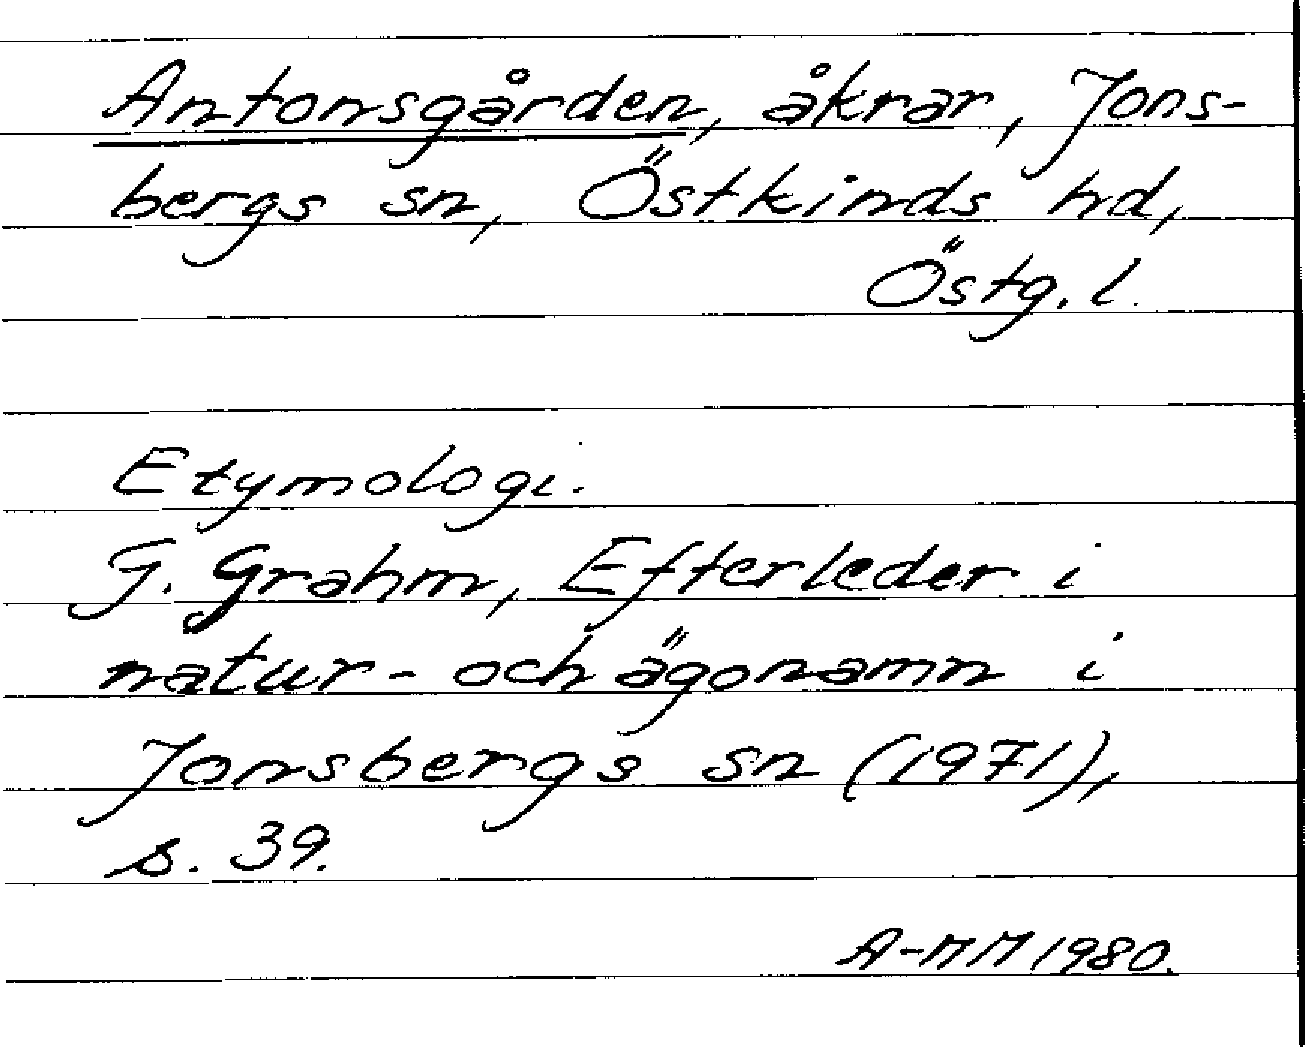 Antonsgården, åkrar, Jons-
bergs sn, Östkinds hd,
Östg. l.
Etymologi.
G. Grahm, Efterleder i
natur- och ägonamn i
Jonsbergs sn (1971),
s. 39.
A-MM 1980.